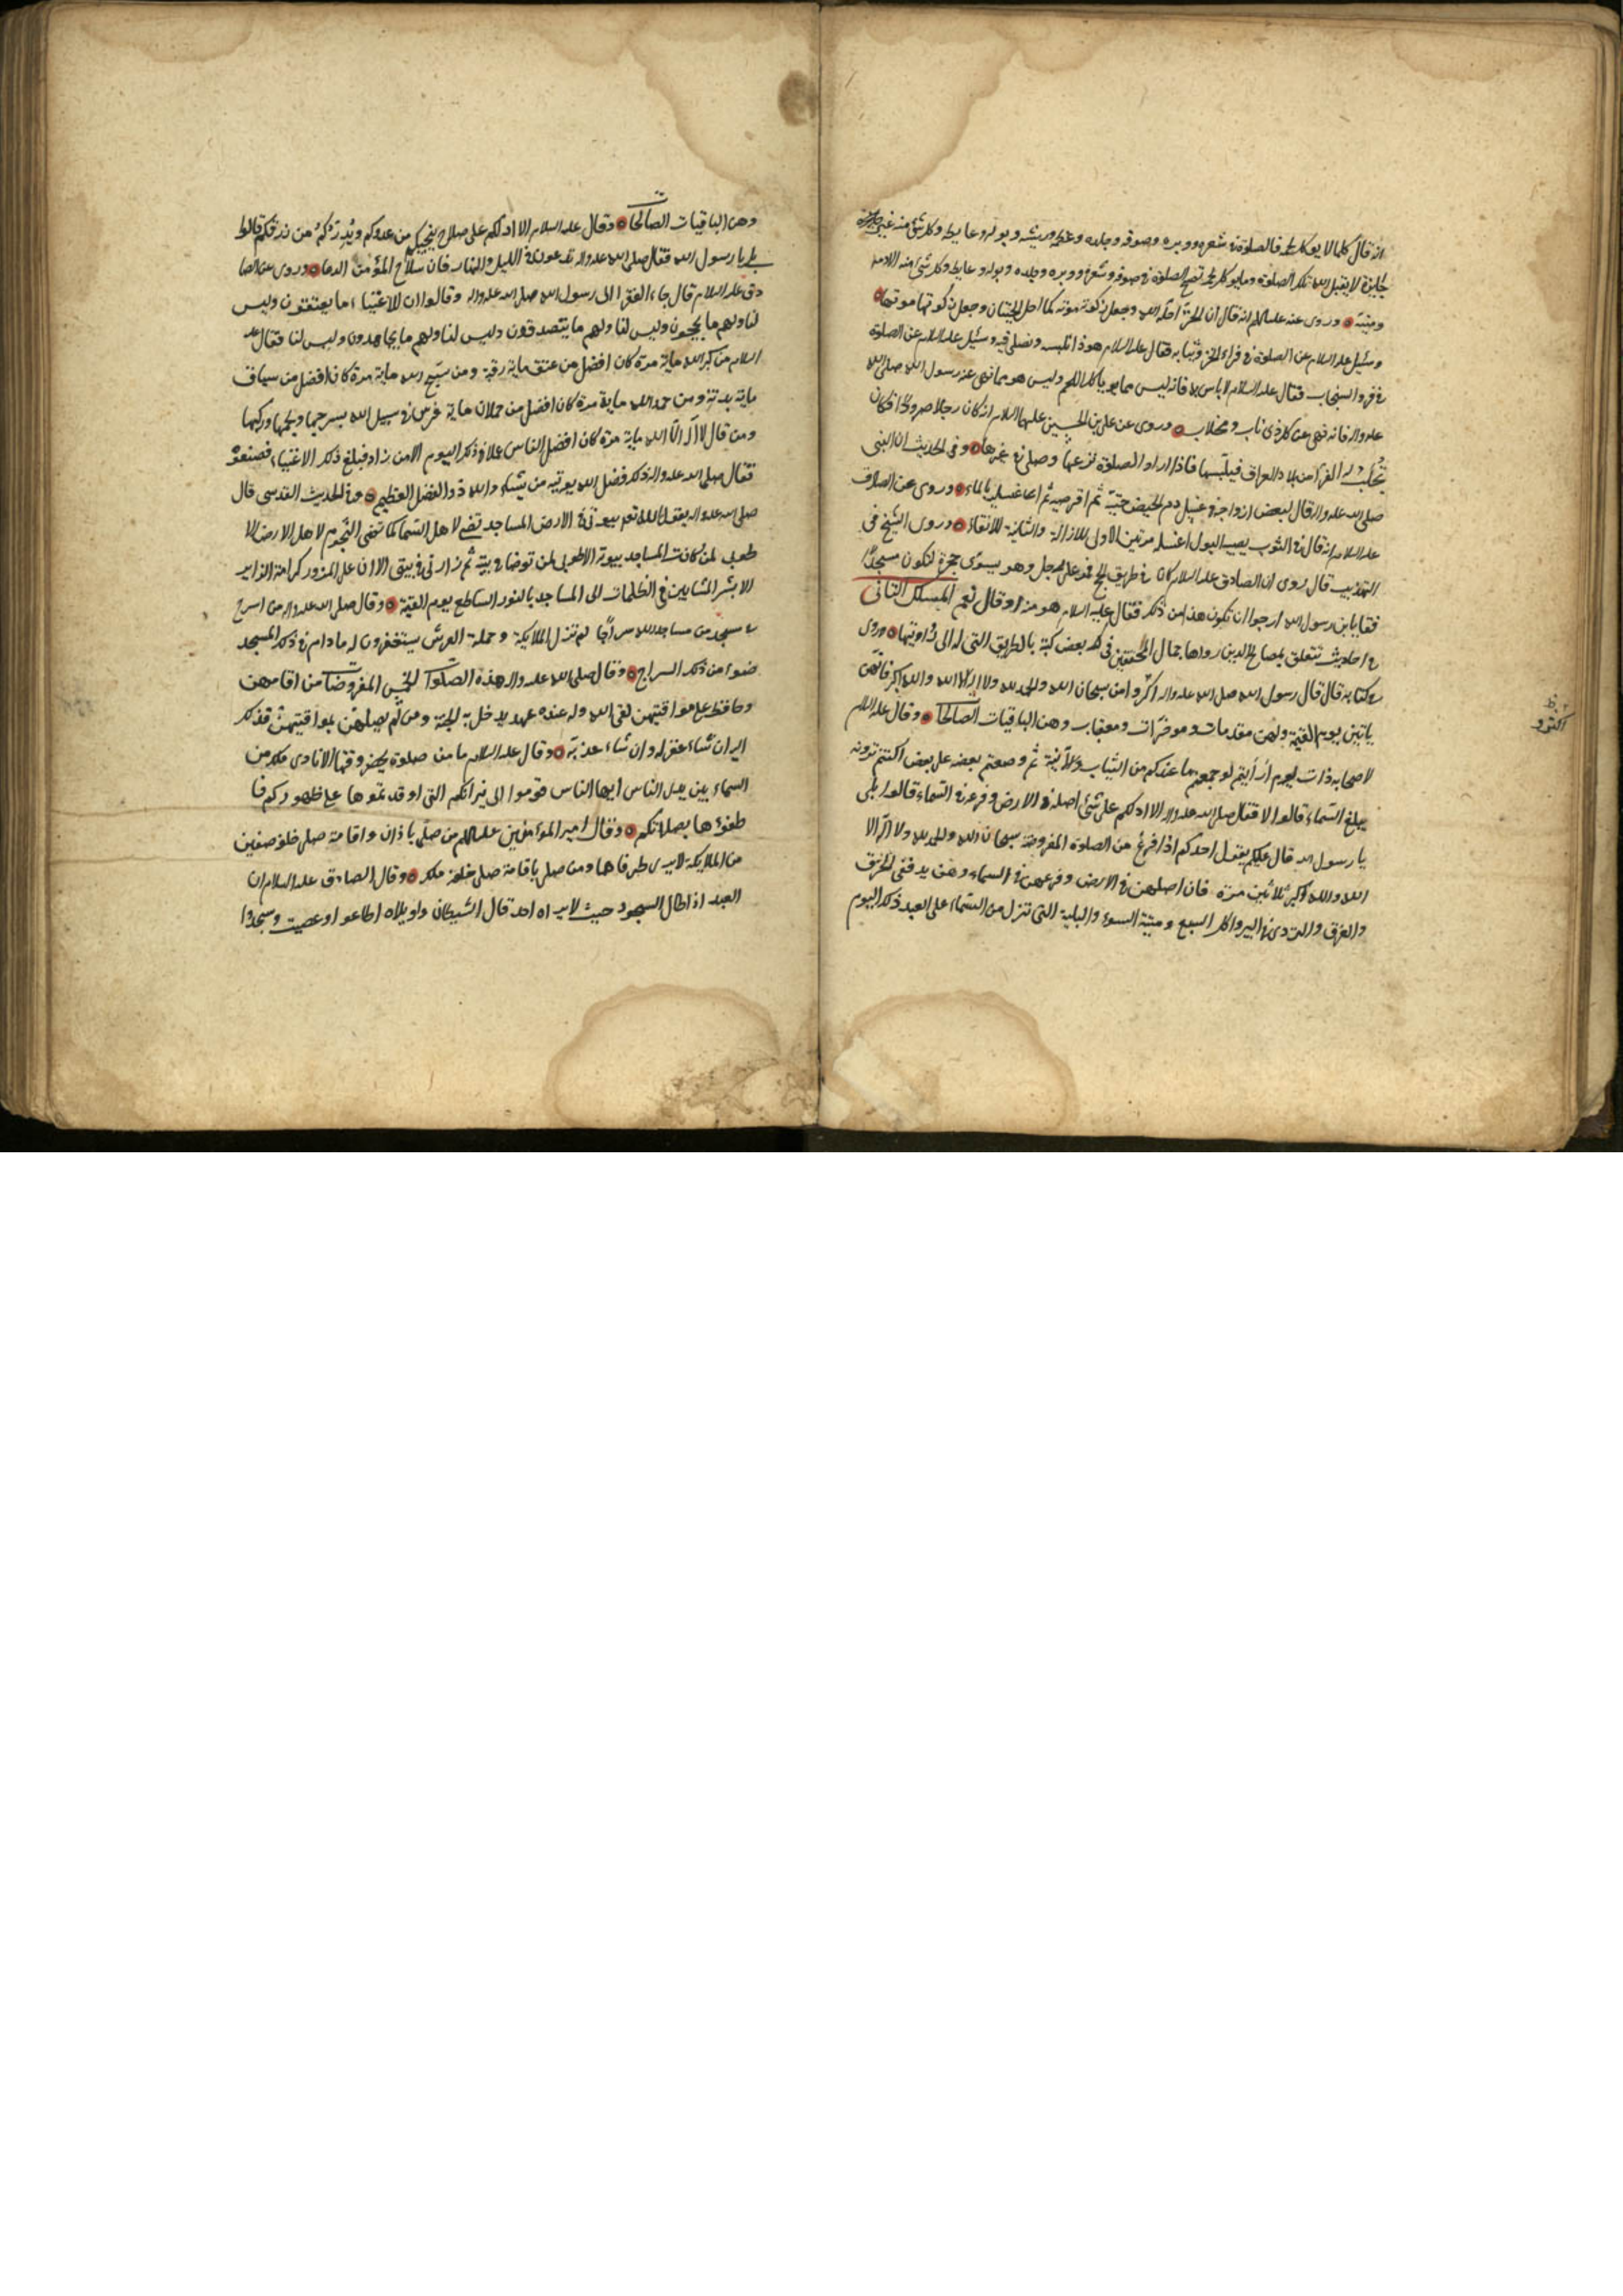 انه قال كلما لا يوكل لحمه فالصلوة في شعره ووبره وصوفه وجلده وعظمه وريشه وبوله وغايطه وكل شئ منه غير
جايزة لا يقبل الله تلك الصلوة وما يوكل لحمه تصح الصلوة في صوفه وشعره ووبره وجلده وبوله وغايطه وكل شئ منه الا دمه
وميتته وروى عنه عليه السلام انه قال ان الخز احله الله وجعل ذكوته موته كما احل الحيتان وجعل ذكوتها موتها
وسئيل عليه السلام عن الصلوة في فراء الخز وثيابه فقال عليه السلام هوذا نلبسه ونصلي فيه وسئيل عليه السلام عن الصلوة
في فرو السنجاب فقال عليه السلام لا باس به فانه ليس مما يوياكل اللحم وليس هو مما نهى عنه رسول الله صلى الله
عليه واله فانه نهى عن كل ذى ناب ومخلاب وروى عن على بن الحسين عليهما السلام انه كان رجلا صرودا فكان
تجلب له الفرا من بلاد العراق فيلبسها فاذا اراد الصلوة نزعها وصلى في غيرها وفي الحديث ان النبى
صلى الله عليه واله قال لبعض ازواجه في غسل دم الحيض حتيه ثم اقرصيه ثم اغسليه بالماء وروى عن الصادق
عليه السلام انه قال في الثوب يصيبه البول اغسله مرتين الاولى للازالة والثانية للانقاء وروى الشيخ في
التهذيب قال روى ان الصادق عليه السلام كان في طريق الحج فمر على رجل وهو يسوى حجرة لتكون مسجدا
فقال يابن رسول الله ارجوا ان تكون هذا من ذلك فقال عليه السلام هو منه او قال نعم المسلك الثانى
في احاديث تتعلق بمصالح الدين رواها جمال المحققين في بعض كتبه بالطريق التى له الى راويها وروى
في كتابه قال قال رسول الله صلى الله عليه واله اكثروا من سبحان الله والحمد لله ولا اله الا الله والله اكبر فانهن
ياتين يوم القيمة ولهن مقدمات وموخرات ومعقبات وهن الباقيات الصالحات وقال عليه السلام
لاصحابه ذات يوم ارأيتم لو جمعتم ما عندكم من الثياب والآنية ثم وضعتم بعضه على بعض اكنتم ترونه
يبلغ السماء قالوا لا فقال صلى الله عليه واله الا ادلكم على شئ اصله في الارض وفرعه في السماء قالوا بلى
يا رسول الله قال عليكم يقول احدكم اذا فرغ من الصلوة المفروضة سبحان الله والحمد لله ولا اله الا
الله والله اكبر ثلاثين مرة فان اصلهن في الارض وفرعهن في السماء وهن يدفعن الحرق
والغرق والتردى في البير واكل السبع وميتة السوء والبلية التى تنزل من السماء على العبد ذلك اليوم
اكثروا
وهن الباقيات الصالحات وقال عليه السلام الا ادلكم على سلاح ينجيكم من عدوكم ويدر رزقكم قالوا
بلى يا رسول الله فقال صلى الله عليه واله تدعون الله في الليل والنهار فان سلاح المؤمن الدعا وروى عن الصا
دق عليه السلام قال جاء الفقرا الى رسول الله صلى الله عليه واله وقالوا ان للاغنياء ما يعتقون وليس
لنا ولهم ما يحجون وليس لنا ولهم ما يتصدقون وليس لنا ولهم ما يجاهدون وليس لنا فقال عليه
السلام من كبر الله ماية مرة كان افضل من عتق ماية رقبة ومن سبح الله ماية مرة كان افضل من سياق
ماية بدنة ومن حمد الله ماية مرة كان افضل من حملان ماية فرس في سبيل الله بسرجها ولجمها وركبها
ومن قال لا اله الا الله ماية مرة كان افضل الناس عملا في ذلك اليوم الا من زاد فبلغ ذلك الاغنياء فصنعوه
فقال صلى الله عليه واله ذلك فضل الله يوتيه من يشاء والله ذو الفضل العظيم وفي الحديث القدسى قال
صلى الله عليه واله يقول الله تعم بيوتى في الارض المساجد تضى لاهل السما كما تضى النجوم لاهل الارض الا
طوبى لمن كانت المساجد بيوته الا طوبى لمن توضا في بيته ثم زارنى في بيتى الا ان على المزور كرامة الزاير
الا بشر المشايين في الظلمات الى المساجد بالنور الساطع يوم القيمة وقال صلى الله عليه واله من اسرج
في مسجد من مساجد الله سراجا لم تزل الملايكة وحملة العرش يستغفرون له ما دام في ذلك المسجد
ضوء من ذلك السراج وقال صلى الله عليه واله هذه الصلوات الخمس المفروضات من اقامهن
وحافظ على مواقيتهن لقى الله وله عنده عهد يدخله به الجنة ومن لم يصلهن بمواقيتهن فذلك
اليه ان شاء غفر له وان شاء عذبه وقال عليه السلام ما من صلوة يحضر وقتها الا نادى ملك من
السماء بين يدى الناس ايها الناس قوموا الى نيرانكم التى اوقدتموها على ظهوركم فا
طفؤها بصلاتكم وقال امير المؤمنين عليه السلام من صلى باذان واقامة صلى خلفه صفين
من الملايكة لا يرى طرفاها ومن صلى باقامة صلى خلفه ملك وقال الصادق عليه السلام ان
العبد اذا اطال السجود حيث لا يراه احد قال الشيطان واويلاه اطاعوا وعصيت وسجدوا